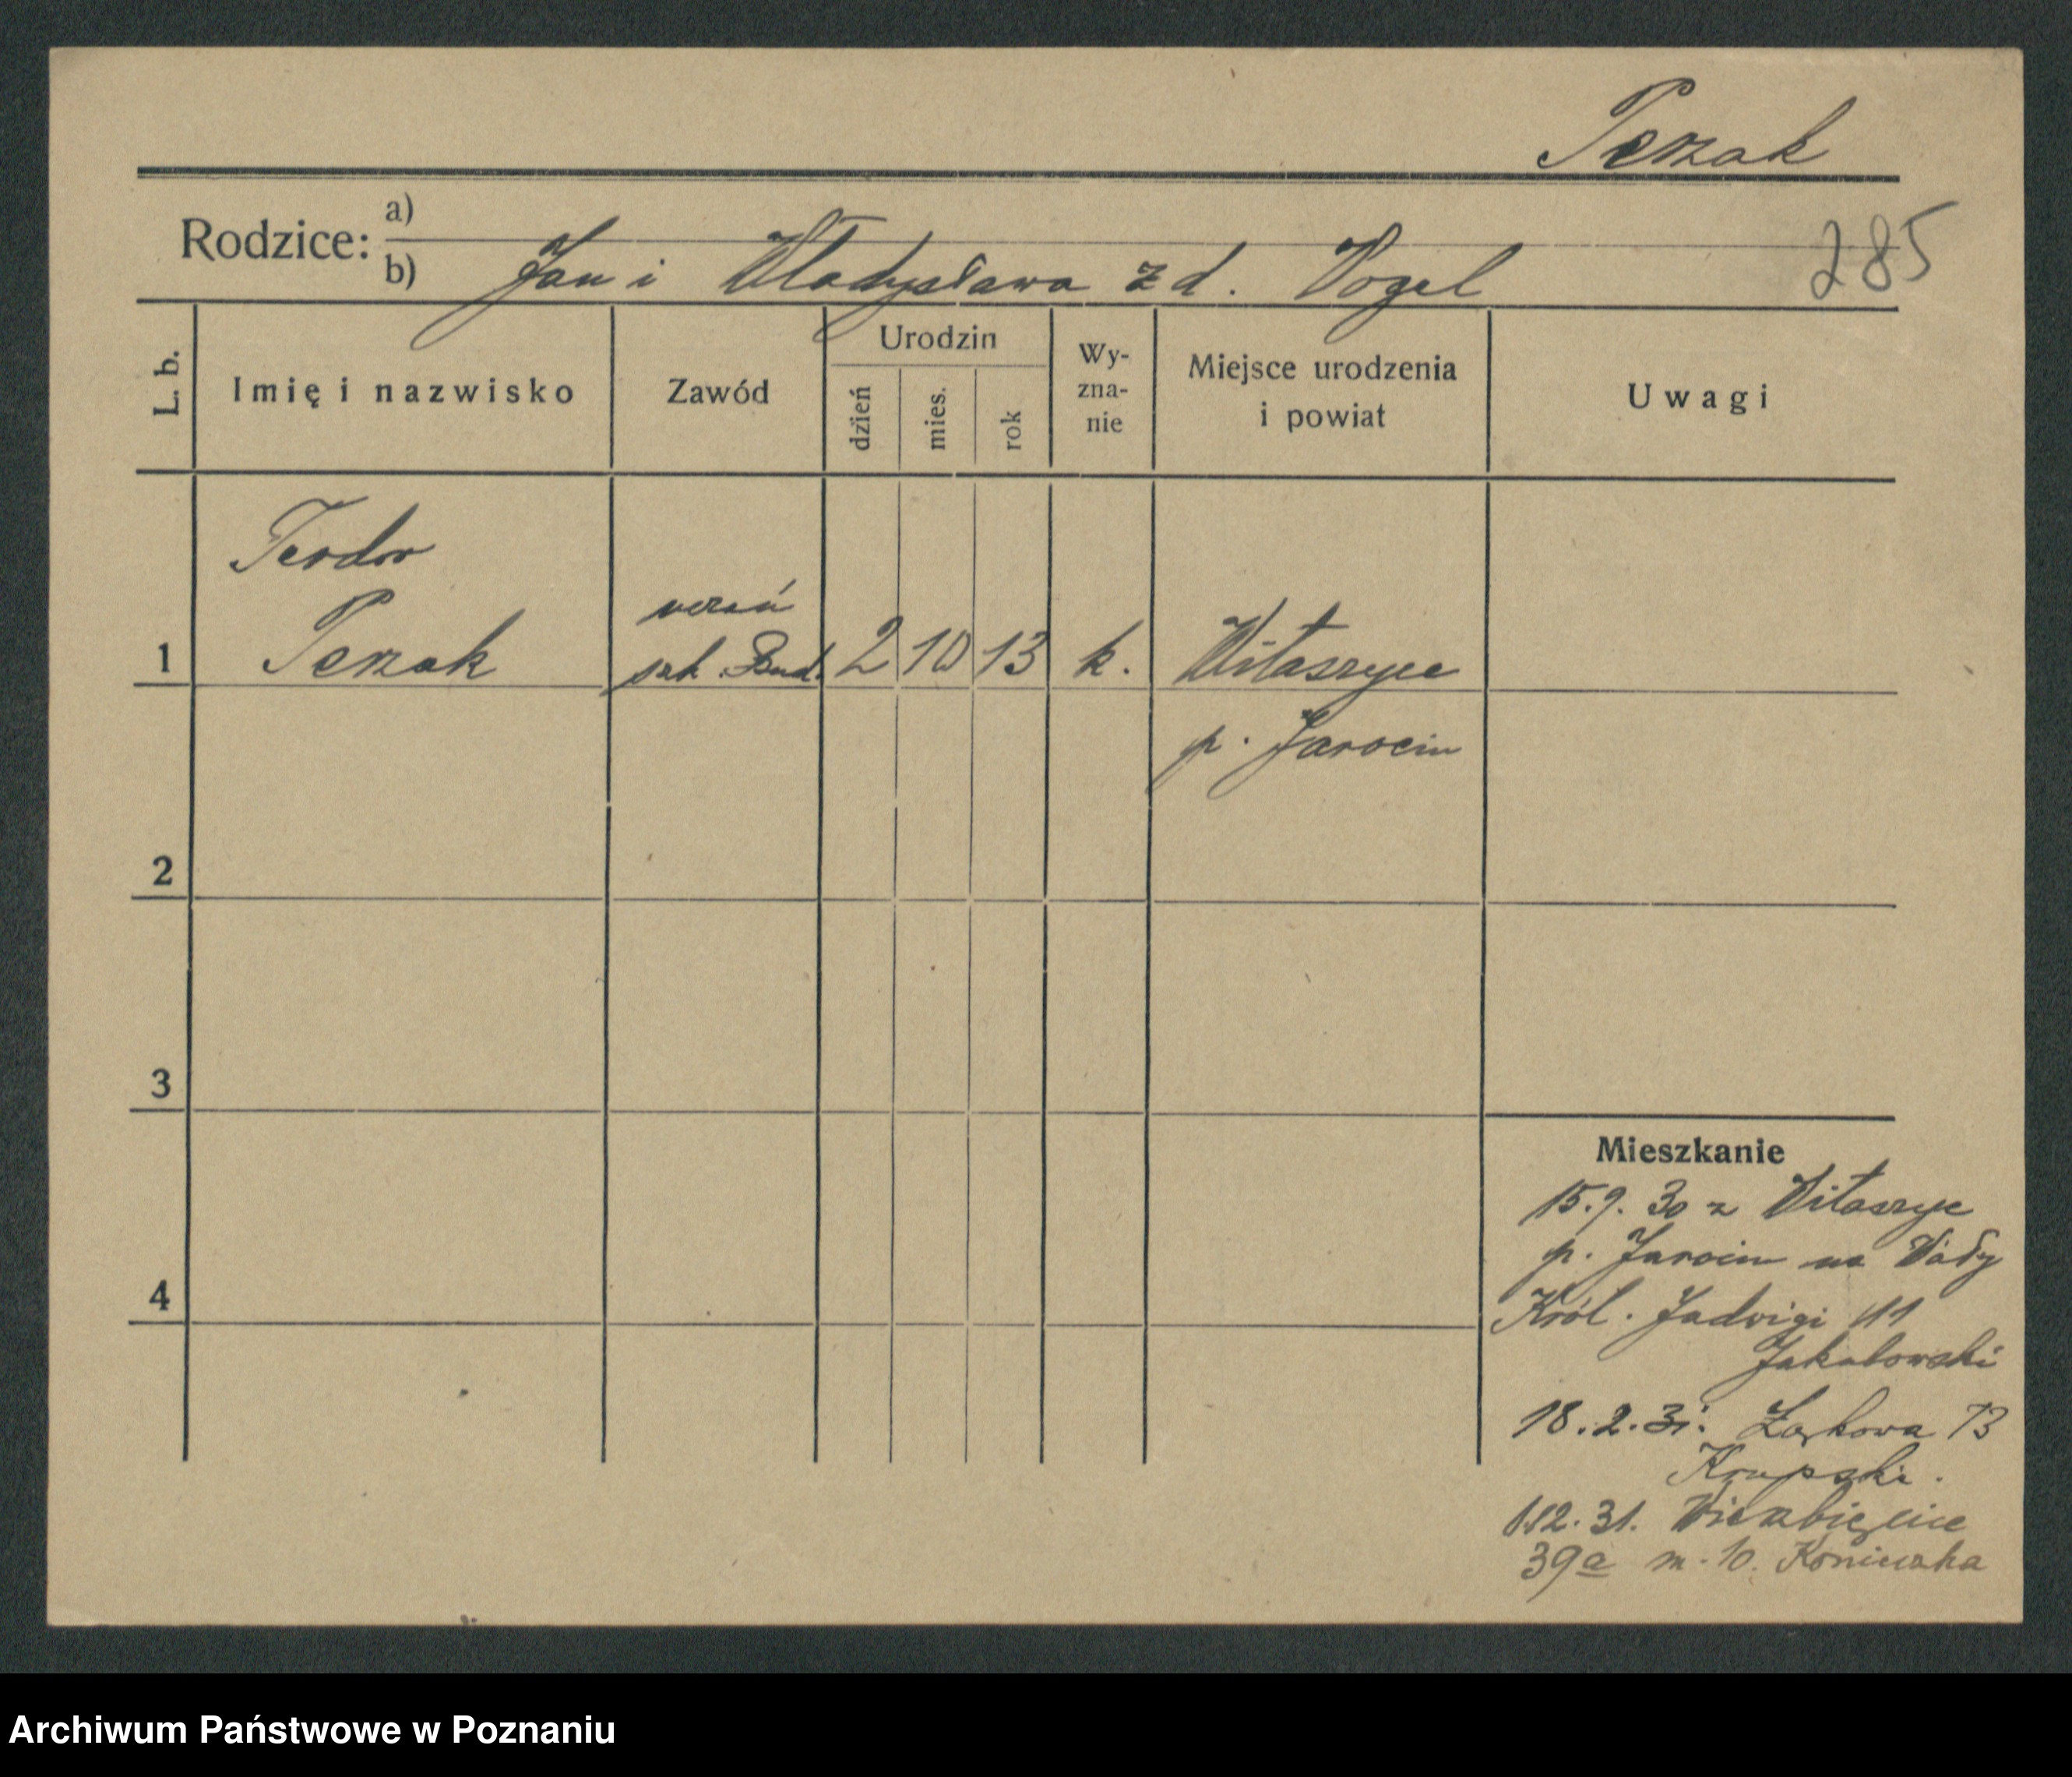 Perzak
Rodzice: a)
b) Jan i Władysława z d. Vogel
285
L. b. Imię i nazwisko Zawód Urodzin dzień mies. rok Wy-zna-nie Miejsce urodzenia i powiat Uwagi
Teodor
1 Perzak uczeń szk. Bud. 2 10 13 k. Witaszyce
p. Jarocin
2
3
4
Mieszkanie
15.9.30 z Witaszyc
p. Jarocin na Wały
Król. Jadwigi 11
Jakubowski
18.2.31. Łąkowa 13
Krupski.
1.12.31. Wierzbięcice
39a m. 10. Konieczka
Archiwum Państwowe w Poznaniu